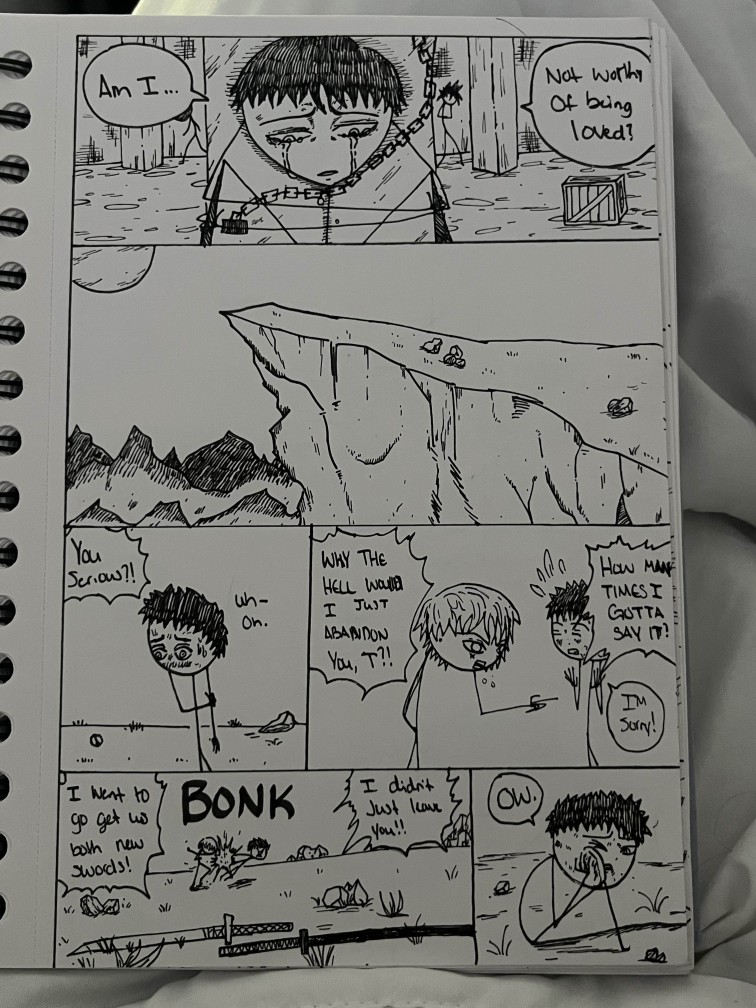 Am I...
Not worthy
Of being
loved?
You
Serious?!
uh-
oh.
WHY THE
HELL WOULD
I JUST
ABANDON
YOU, T?!
HOW MANY
TIMES I
GOTTA
SAY IT?
I'm
Sorry!
I went to
go get us
both new
swords!
BONK
I didn't
Just leave
You!!
OW.